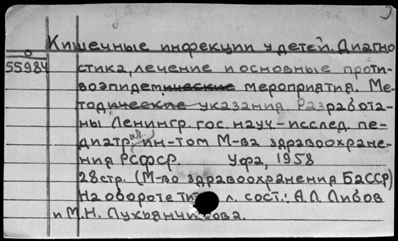 Кишечные инфекции у детей. Диагно
55984 стика, лечение и основные проти-
воэпидемические мероприятия. Ме-
тодические указания. Разработа-
ны Ленингр. гос. науч.-исслед. пе-
диатр. ин-том М-ва здравоохране-
ния РСФСР. Уфа, 1958
28стр. (М-во здравоохранения БАССР)
На обороте тит. л. сост.: А.Л. Либов
и М.Н. Лукьянчикова.